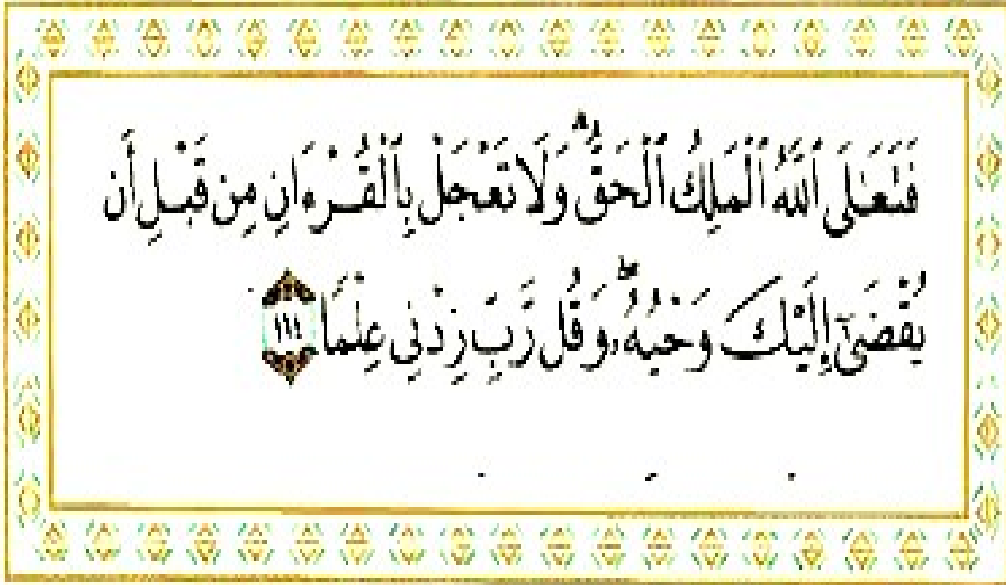 فَتَعَٰلَى ٱللَّهُ ٱلْمَلِكُ ٱلْحَقُّ ۗ وَلَا تَعْجَلْ بِٱلْقُرْءَانِ مِن قَبْلِ أَن
يُقْضَىٰٓ إِلَيْكَ وَحْيُهُۥ ۖ وَقُل رَّبِّ زِدْنِى عِلْمًا ١١٤